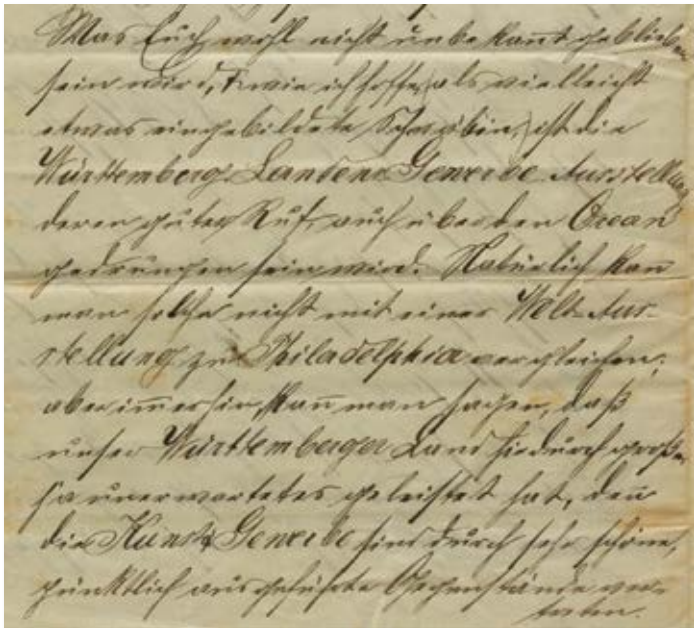 Was Euch wohl nicht unbekañt geblieben
sein wird, & wie ich hoffe, als vielleicht
etwas eingebildete Schwäbin, ist die
Württemberg. Landes Gewerbe Ausstellung
deren guter Ruf auch über den Ocean
gedrungen sein wird. Natürlich kañ
man solche nicht mit einer Welt-Aus-
stellung zu Philadelphia vergleichen;
aber im̄erhin kañ man sagen, daß
unser Württemberger Land hiedurch großes
ja unerwartetes geleistet hat, deñ
die Kunst & Gewerbe sind durch sehr schöne,
pünktlich ausgeführte Gegenstände ver-
treten.